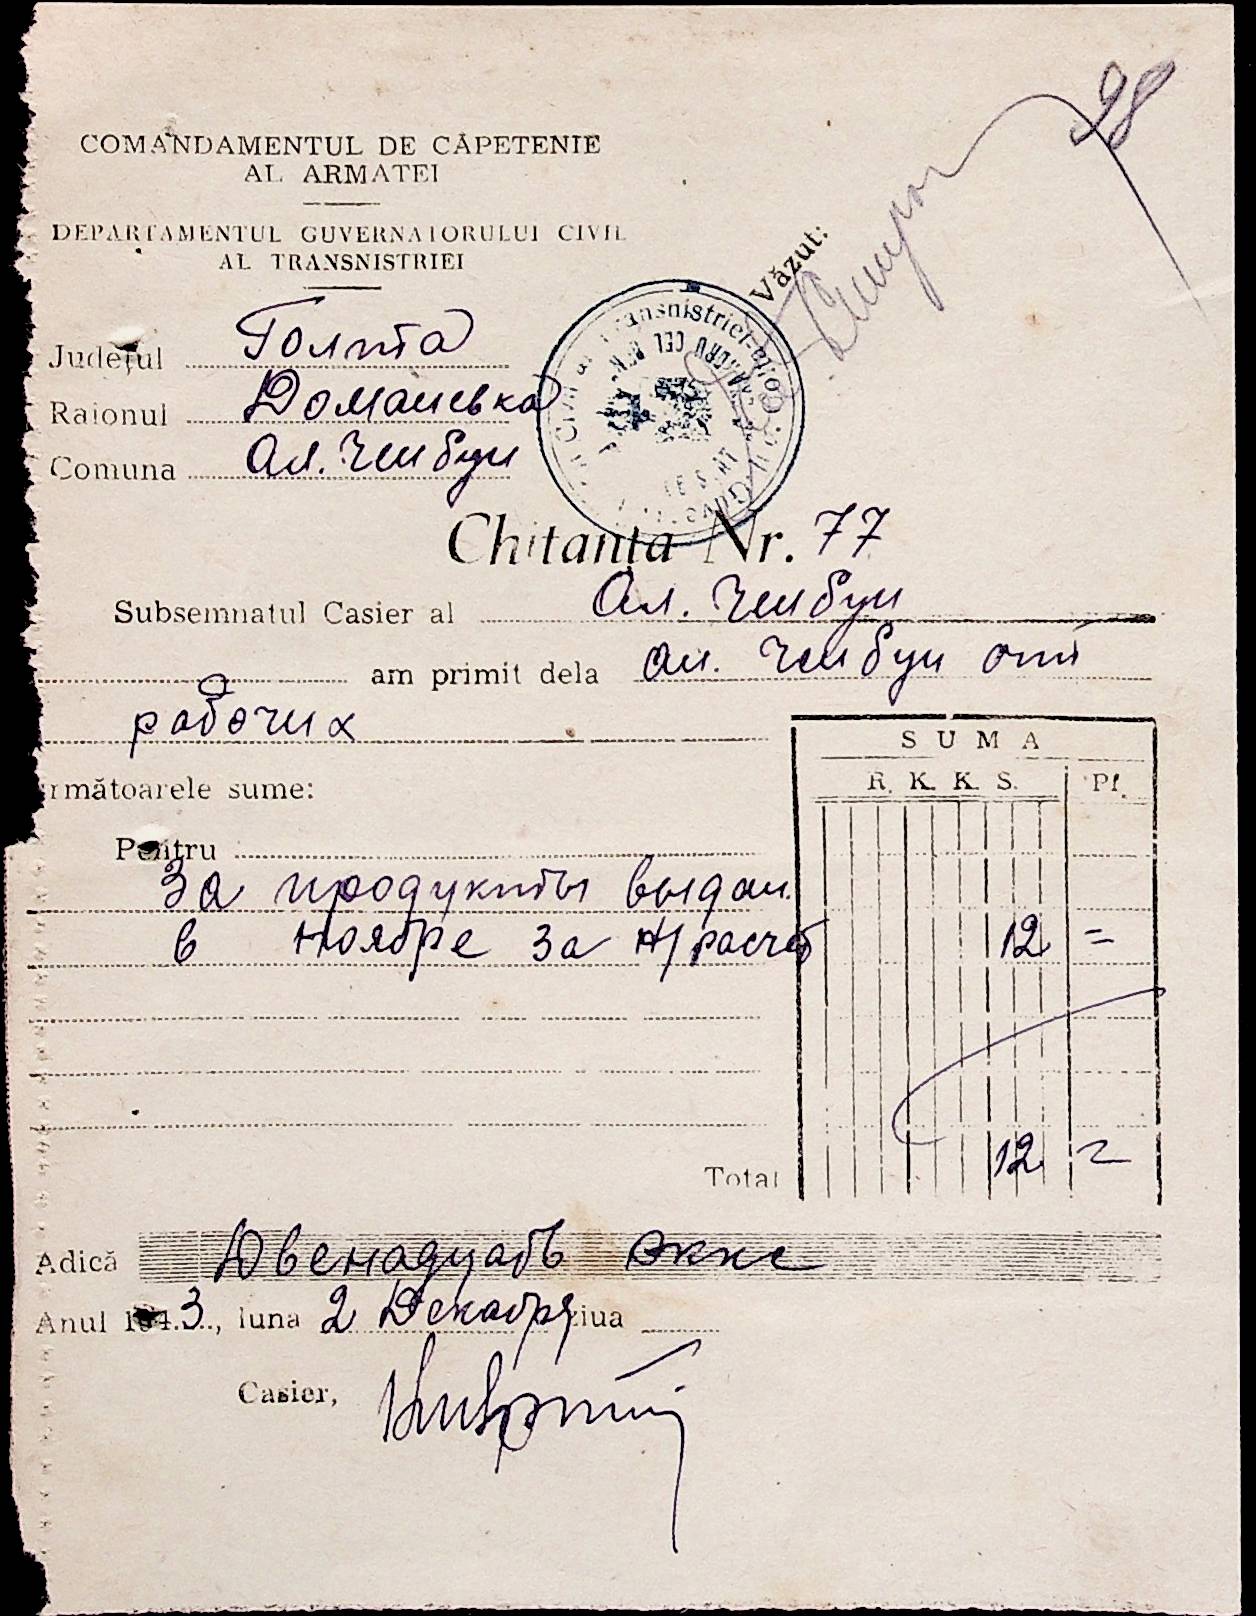 98
COMANDAMENTUL DE CĂPETENIE
AL ARMATEI
DEPARTAMENTUL GUVERNATORULUI CIVIL
AL TRANSNISTRIEI
Văzut:
Județul Голта
Raionul Доманевка
Comuna Ал. Чембун
Transnistriei
Chitanța Nr. 77
Subsemnatul Casier al Ал. Чембун
am primit dela Ал. Чембун от
рабочих
următoarele sume:
SUMA
R. K. K. S. Pf.
Pentru
За продукты выдан.
в ноябре за н/расчет 12 =
Total 12 =
Adică Двенадцать
Anul 194 3, luna 2 Декабря ziua
Casier,